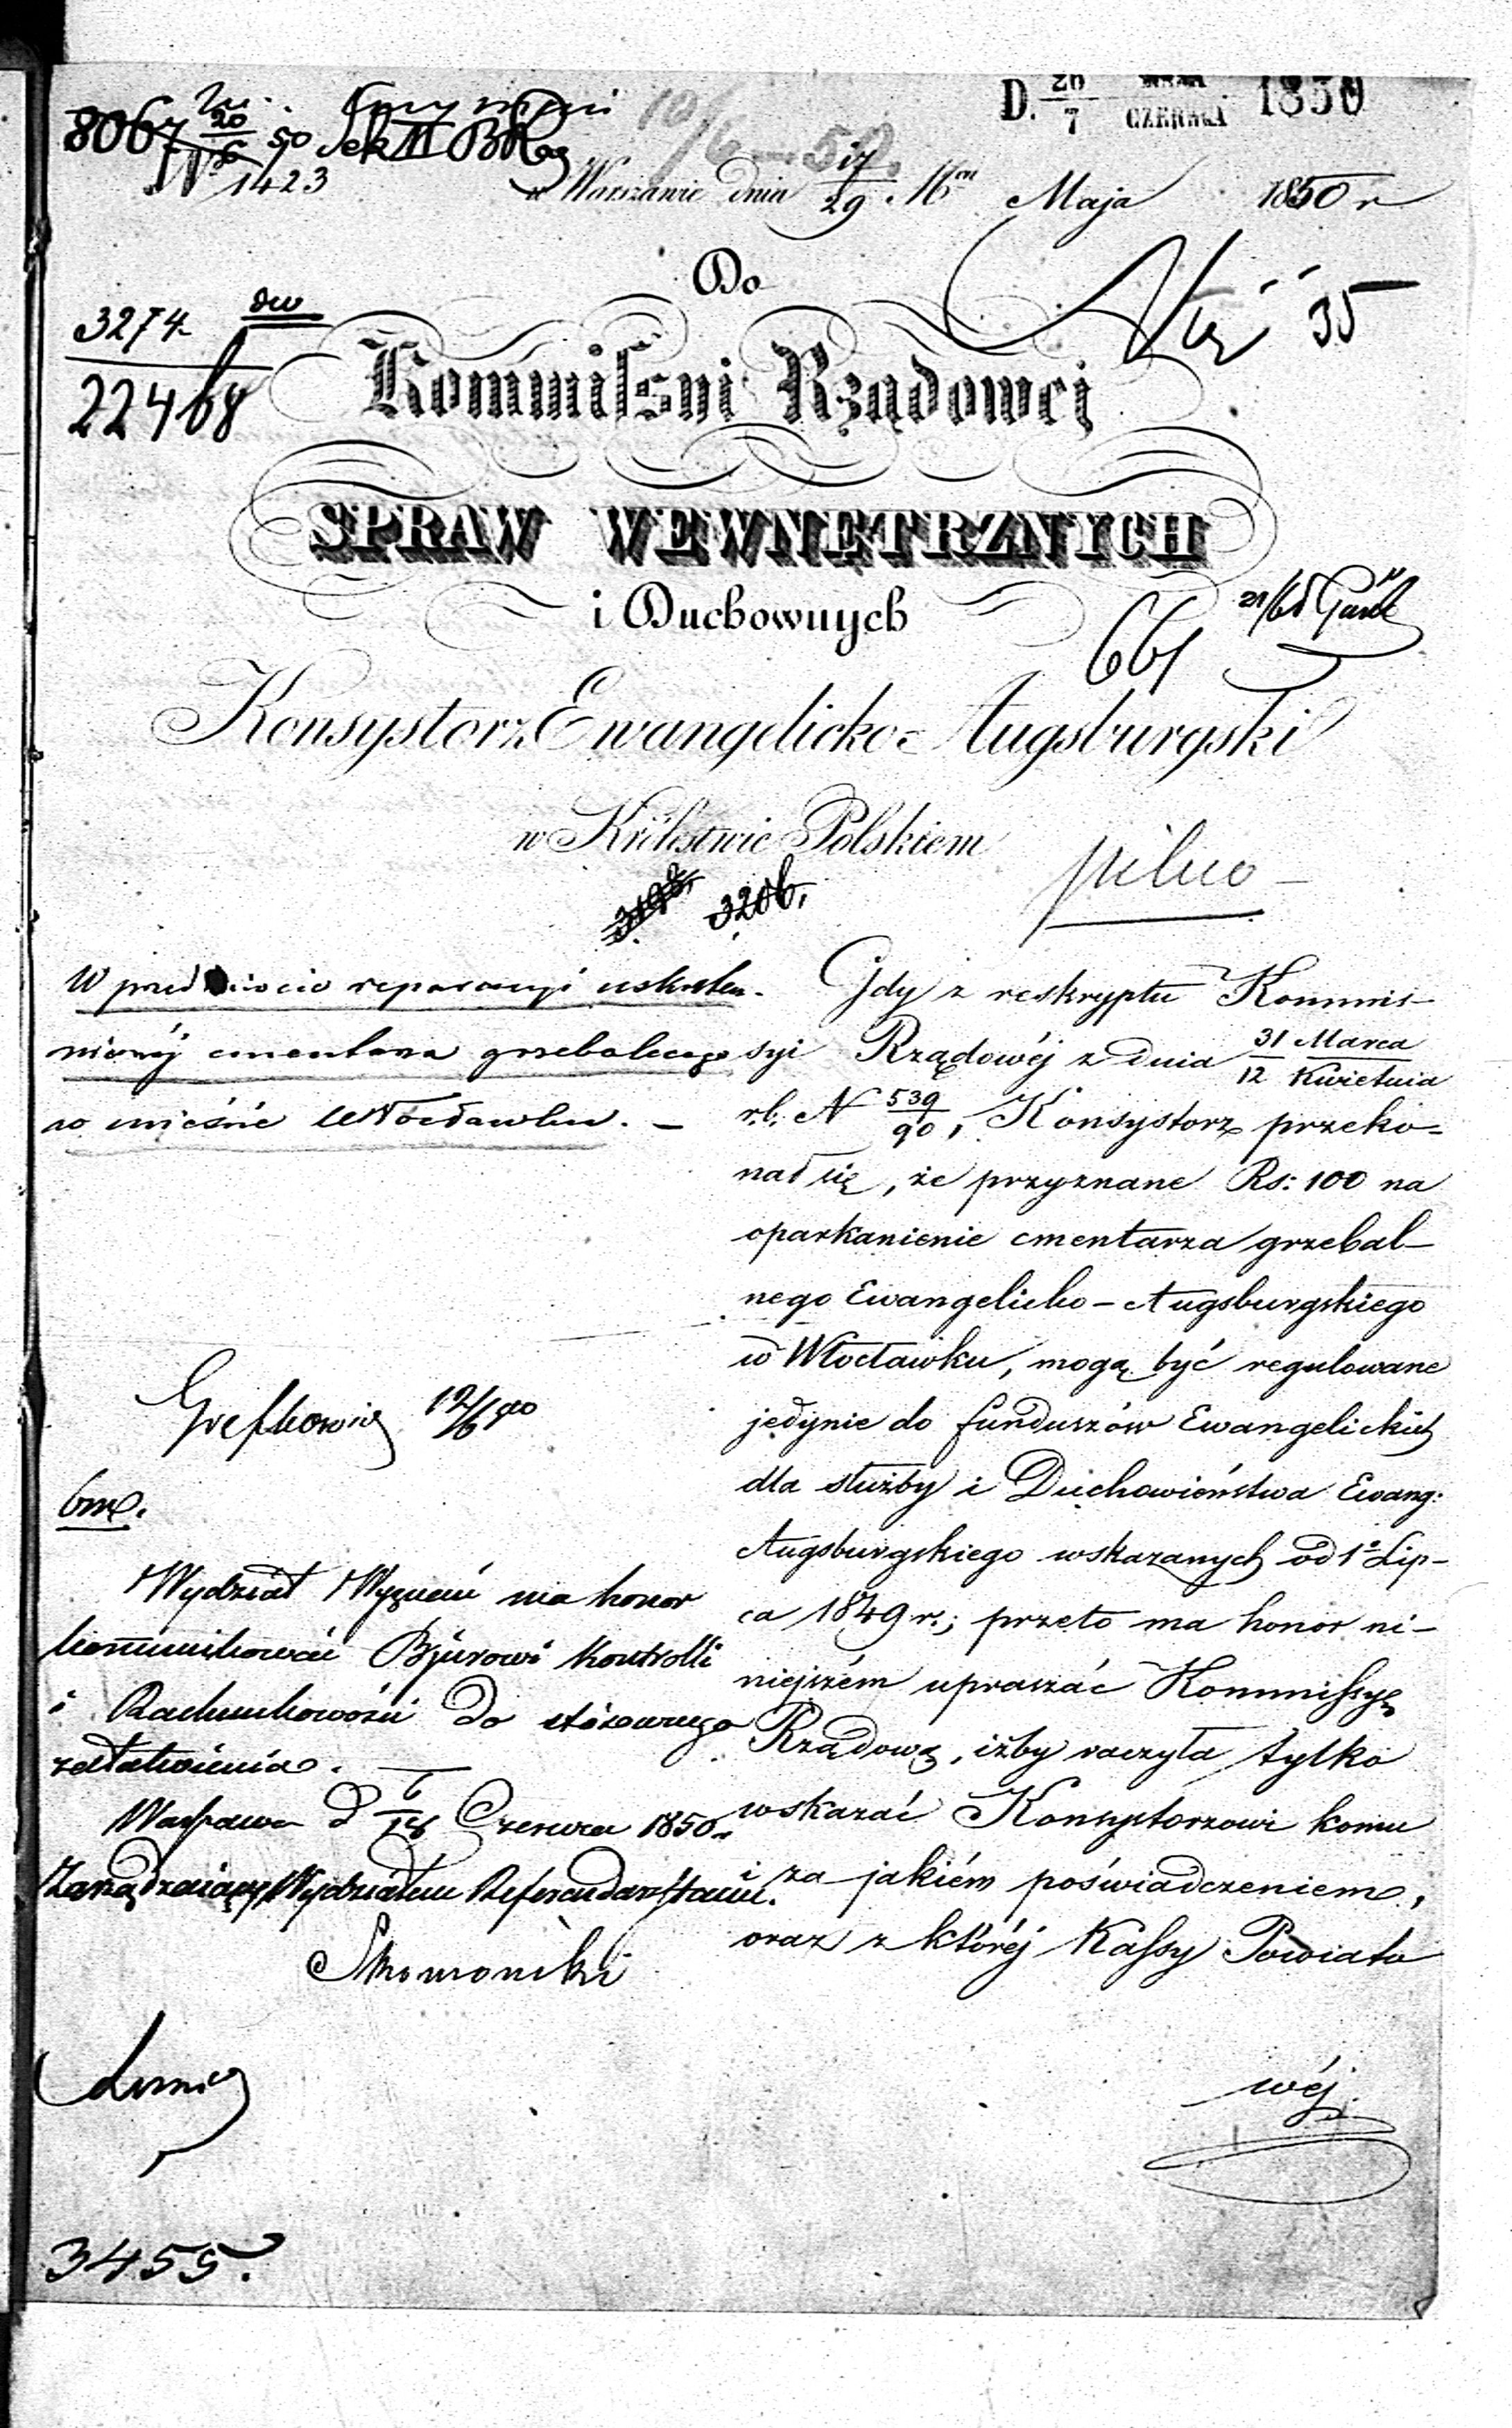 D. 26/7 CZERWCA 1850
8067 20/6 50 Sek II BR
N° 1423
w Warszawie dnia 17/29 Mca Maja 1850 r
Do
3274
22468
35
Kommissyi Rządowej
SPRAW WEWNĘTRZNYCH
i Duchownych
661
Konsystorz Ewangelicko-Augsburgski
w Królestwie Polskiem
pilno
3206.
W przedmiocie reparacyi uskutecz-
nionéj cmentarza grzebalnego
w mieście Włocławku. –
Gdy z reskryptu Kommis-
syi Rządowéj z dnia 31 Marca / 12 Kwietnia
r.b. N 539/90, Konsystorz przeko-
nał się, że przyznane Rs: 100 na
oparkanienie cmentarza grzebal-
nego Ewangelicko-Augsburgskiego
w Włocławku, mogą być regulowane
jedynie do funduszów Ewangelickich
dla służby i Duchowieństwa Ewang:
Augsburgskiego wskazanych od 1° Lip-
ca 1849 r.; przeto ma honor ni-
niejszém upraszać Kommissyę
Rządową, iżby raczyła tylko
wskazać Konsystorzowi komu
i za jakiém poświadczeniem,
oraz z któréj Kassy Powiato
wéj
12/6
Wydział Wyznań ma honor
kommunikować Bjurowi Kontrolli
i Rachunkowości do stósownego
załatwienia. —
Warszawa d 6/18 Czerwca 1850 r.
Zarządzaiący Wydziałem Referendarz Stanu.
3455.